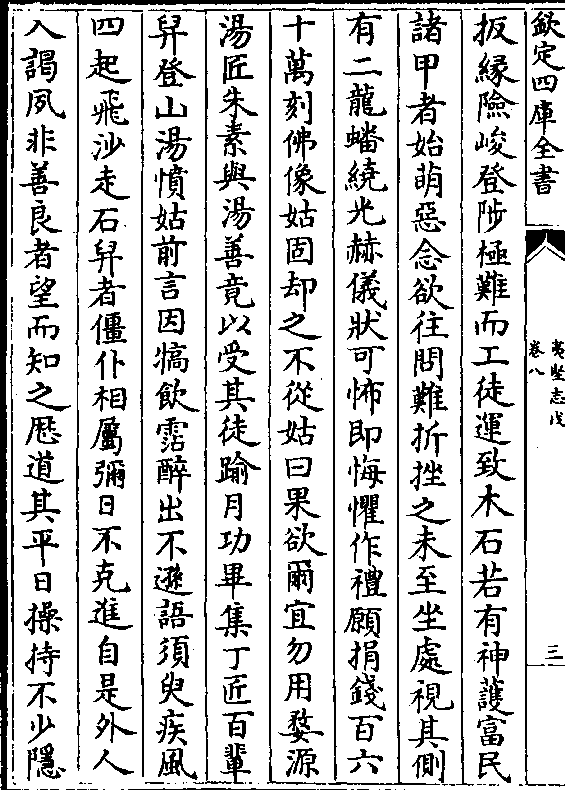 欽定四庫全書
夷堅志戊
卷八
三
扳緣險峻登陟極難而工徒運致木石若有神護富民
諸甲者始萌惡念欲往問難折挫之未至坐處視其側
有二龍蟠繞光赫儀狀可怖即悔懼作禮願捐錢百六
十萬刻佛像姑固却之不從姑曰果欲爾宜勿用婺源
湯匠朱素與湯善竟以受其徒踰月功畢集丁匠百輩
舁登山湯憤姑前言因犒飲霑醉出不遜語須臾疾風
四起飛沙走石舁者僵仆相屬彌日不克進自是外人
入謁夙非善良者望而知之厯道其平日操持不少隱